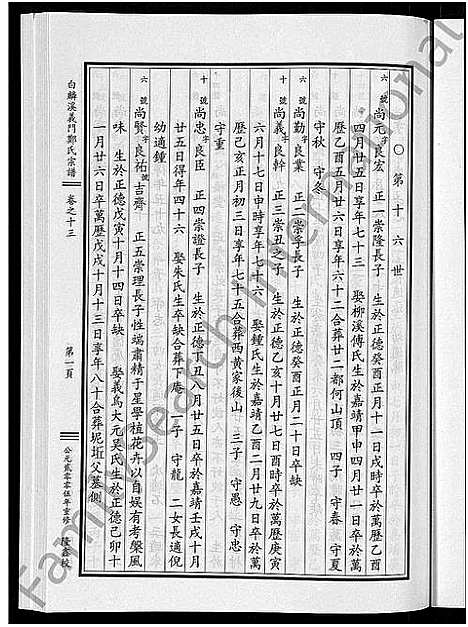 ○第十六世
六號尚元字良宏 正一崇隆長子 生於正德癸酉正月十一日戌時卒於萬歷乙酉
四月廿五日享年七十三 娶柳溪傅氏生於嘉靖甲申四月一日卒於萬
歷乙酉五月廿六日享年六十二合葬廿二都何山頂 四子 守春 守夏
守秋 守冬
六號尚勤字良業 正二崇孚長子 生於正德癸酉正月二十日卒缺
十號尚義字良幹 正三崇丑之子 生於正德乙亥十月廿七日酉時卒於萬歷庚寅
六月十七日申時享年七十六 娶鍾氏生於嘉靖乙酉二月廿九日卒於萬
歷己亥正月初三日享年七十五合葬西黃家後山 三子 守愚 守忠
守重
十號尚忠字良臣 正四崇證長子 生於正德丁丑八月廿五日卒於嘉靖壬戌十月
廿五日得年四十六 娶朱氏生卒缺合葬下庵 一子 守龍 二女長適倪
幼適鍾
六號尚賢字良佑號吉齋 正五崇理長子性端肅精于星學植花卉以自娛有考槃風
味 生於正德戊寅十月十四日卒缺 娶義烏大元吳氏生於正德己卯十
一月廿六日卒萬歷戊戌十月十三日享年八十合葬坭垳父墓側
白麟溪義門鄭氏宗譜
卷之十三
第一頁
公元貳零零伍年重修
隆鑫校
Family Search International